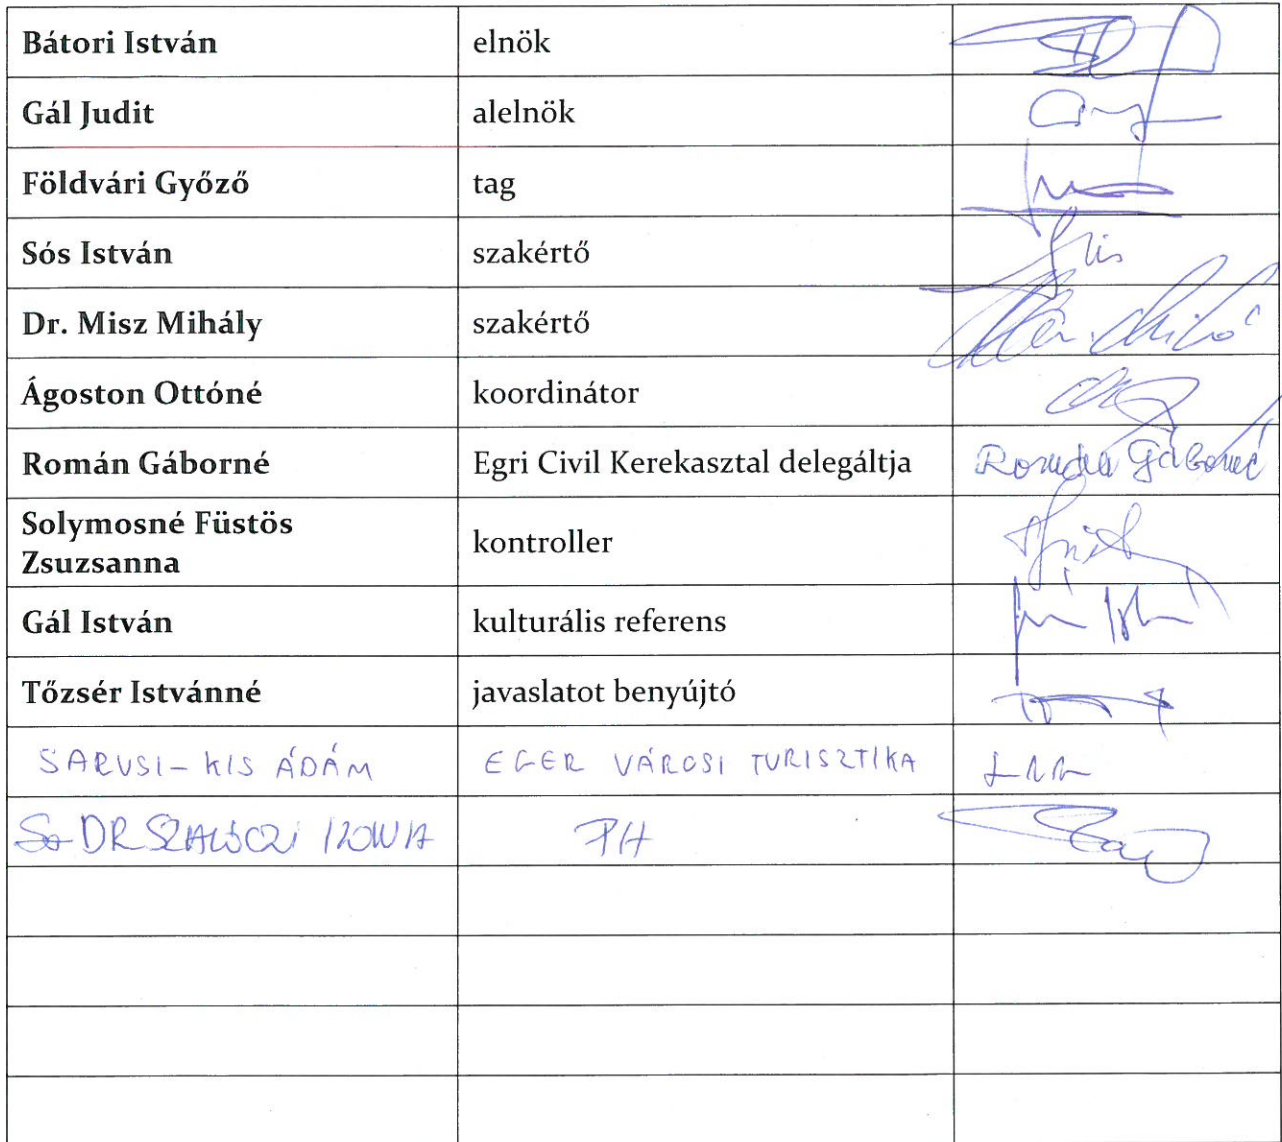 Bátori István elnök
Gál Judit alelnök
Földvári Győző tag
Sós István szakértő
Dr. Misz Mihály szakértő
Ágoston Ottóné koordinátor
Román Gáborné Egri Civil Kerekasztal delegáltja Román Gáborné
Solymosné Füstös
Zsuzsanna kontroller
Gál István kulturális referens
Tőzsér Istvánné javaslatot benyújtó
SARUSI-KIS ÁDÁM EGER VÁROSI TURISZTIKA
DR SZALÓCZI ILONA PH